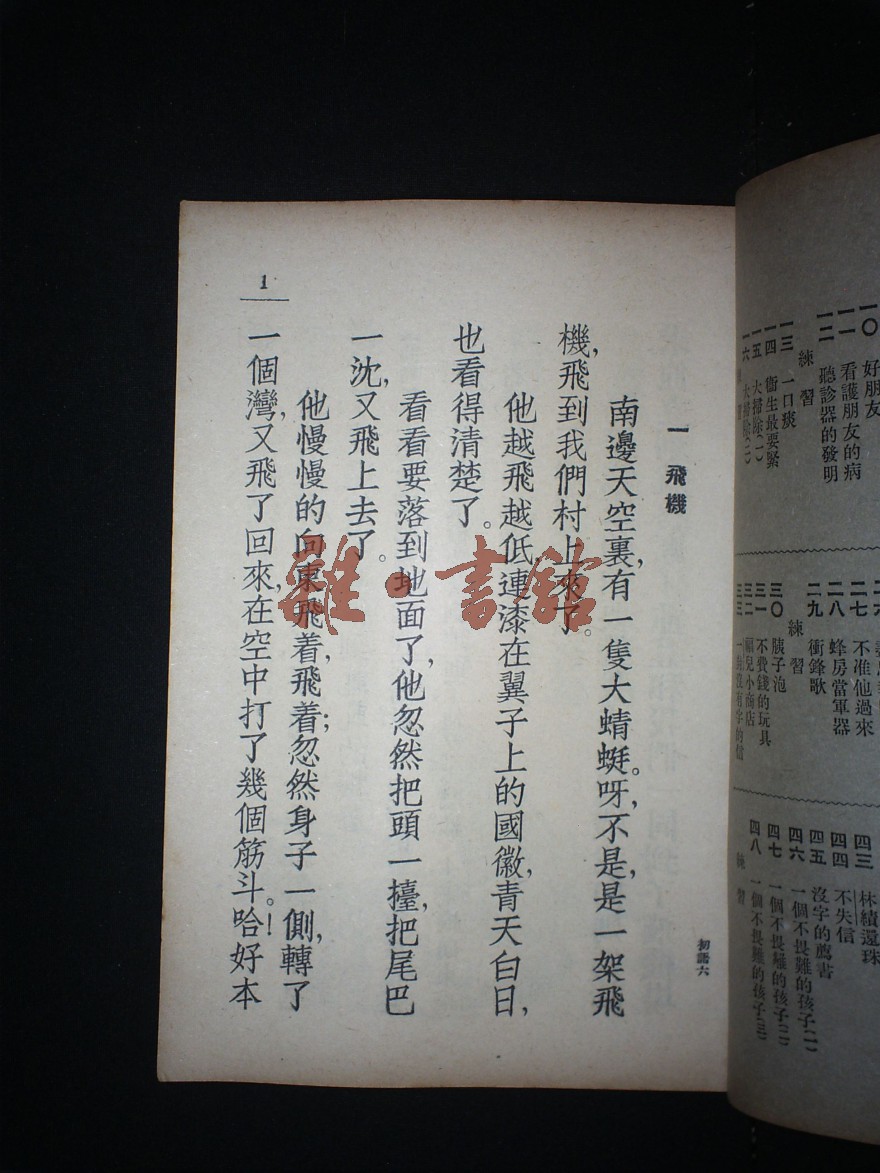 一〇 好朋友
一一 看護朋友的病
一二 聽診器的發明
練習
一三 一口痰
一四 衞生最要緊
一五 大掃除(一)
一六 大掃除(二)
二七 不准他過來
二八 蜂房當軍器
二九 衝鋒歌
練習
三〇 胰子泡
三一 不費錢的玩具
三二 兒小商店
三三 一封沒有字的信
四三 林績還珠
四四 不失信
四五 沒字的薦書
四六 一個不畏難的孩子(一)
四七 一個不畏難的孩子(二)
四八 一個不畏難的孩子(三)
練習
初語六
一 飛機
南邊天空裏,有一隻大蜻蜓。呀,不是,是一架飛
機,飛到我們村上來了。
他越飛越低,連漆在翼子上的國徽,青天白日,
也看得清楚了。
看看要落到地面了,他忽然把頭一擡,把尾巴
一沈,又飛上去了。
他慢慢的向東飛着,飛着;忽然身子一側,轉了
一個灣,又飛了回來,在空中打了幾個筋斗。哈!好本
1
雜·書館